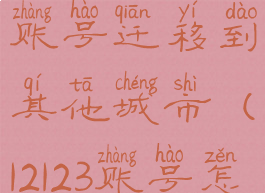 zhàng hào qiān yí dào
账号迁移到
qí tā chéng shì
其他城市（
zhàng hào zěn
12123账号怎